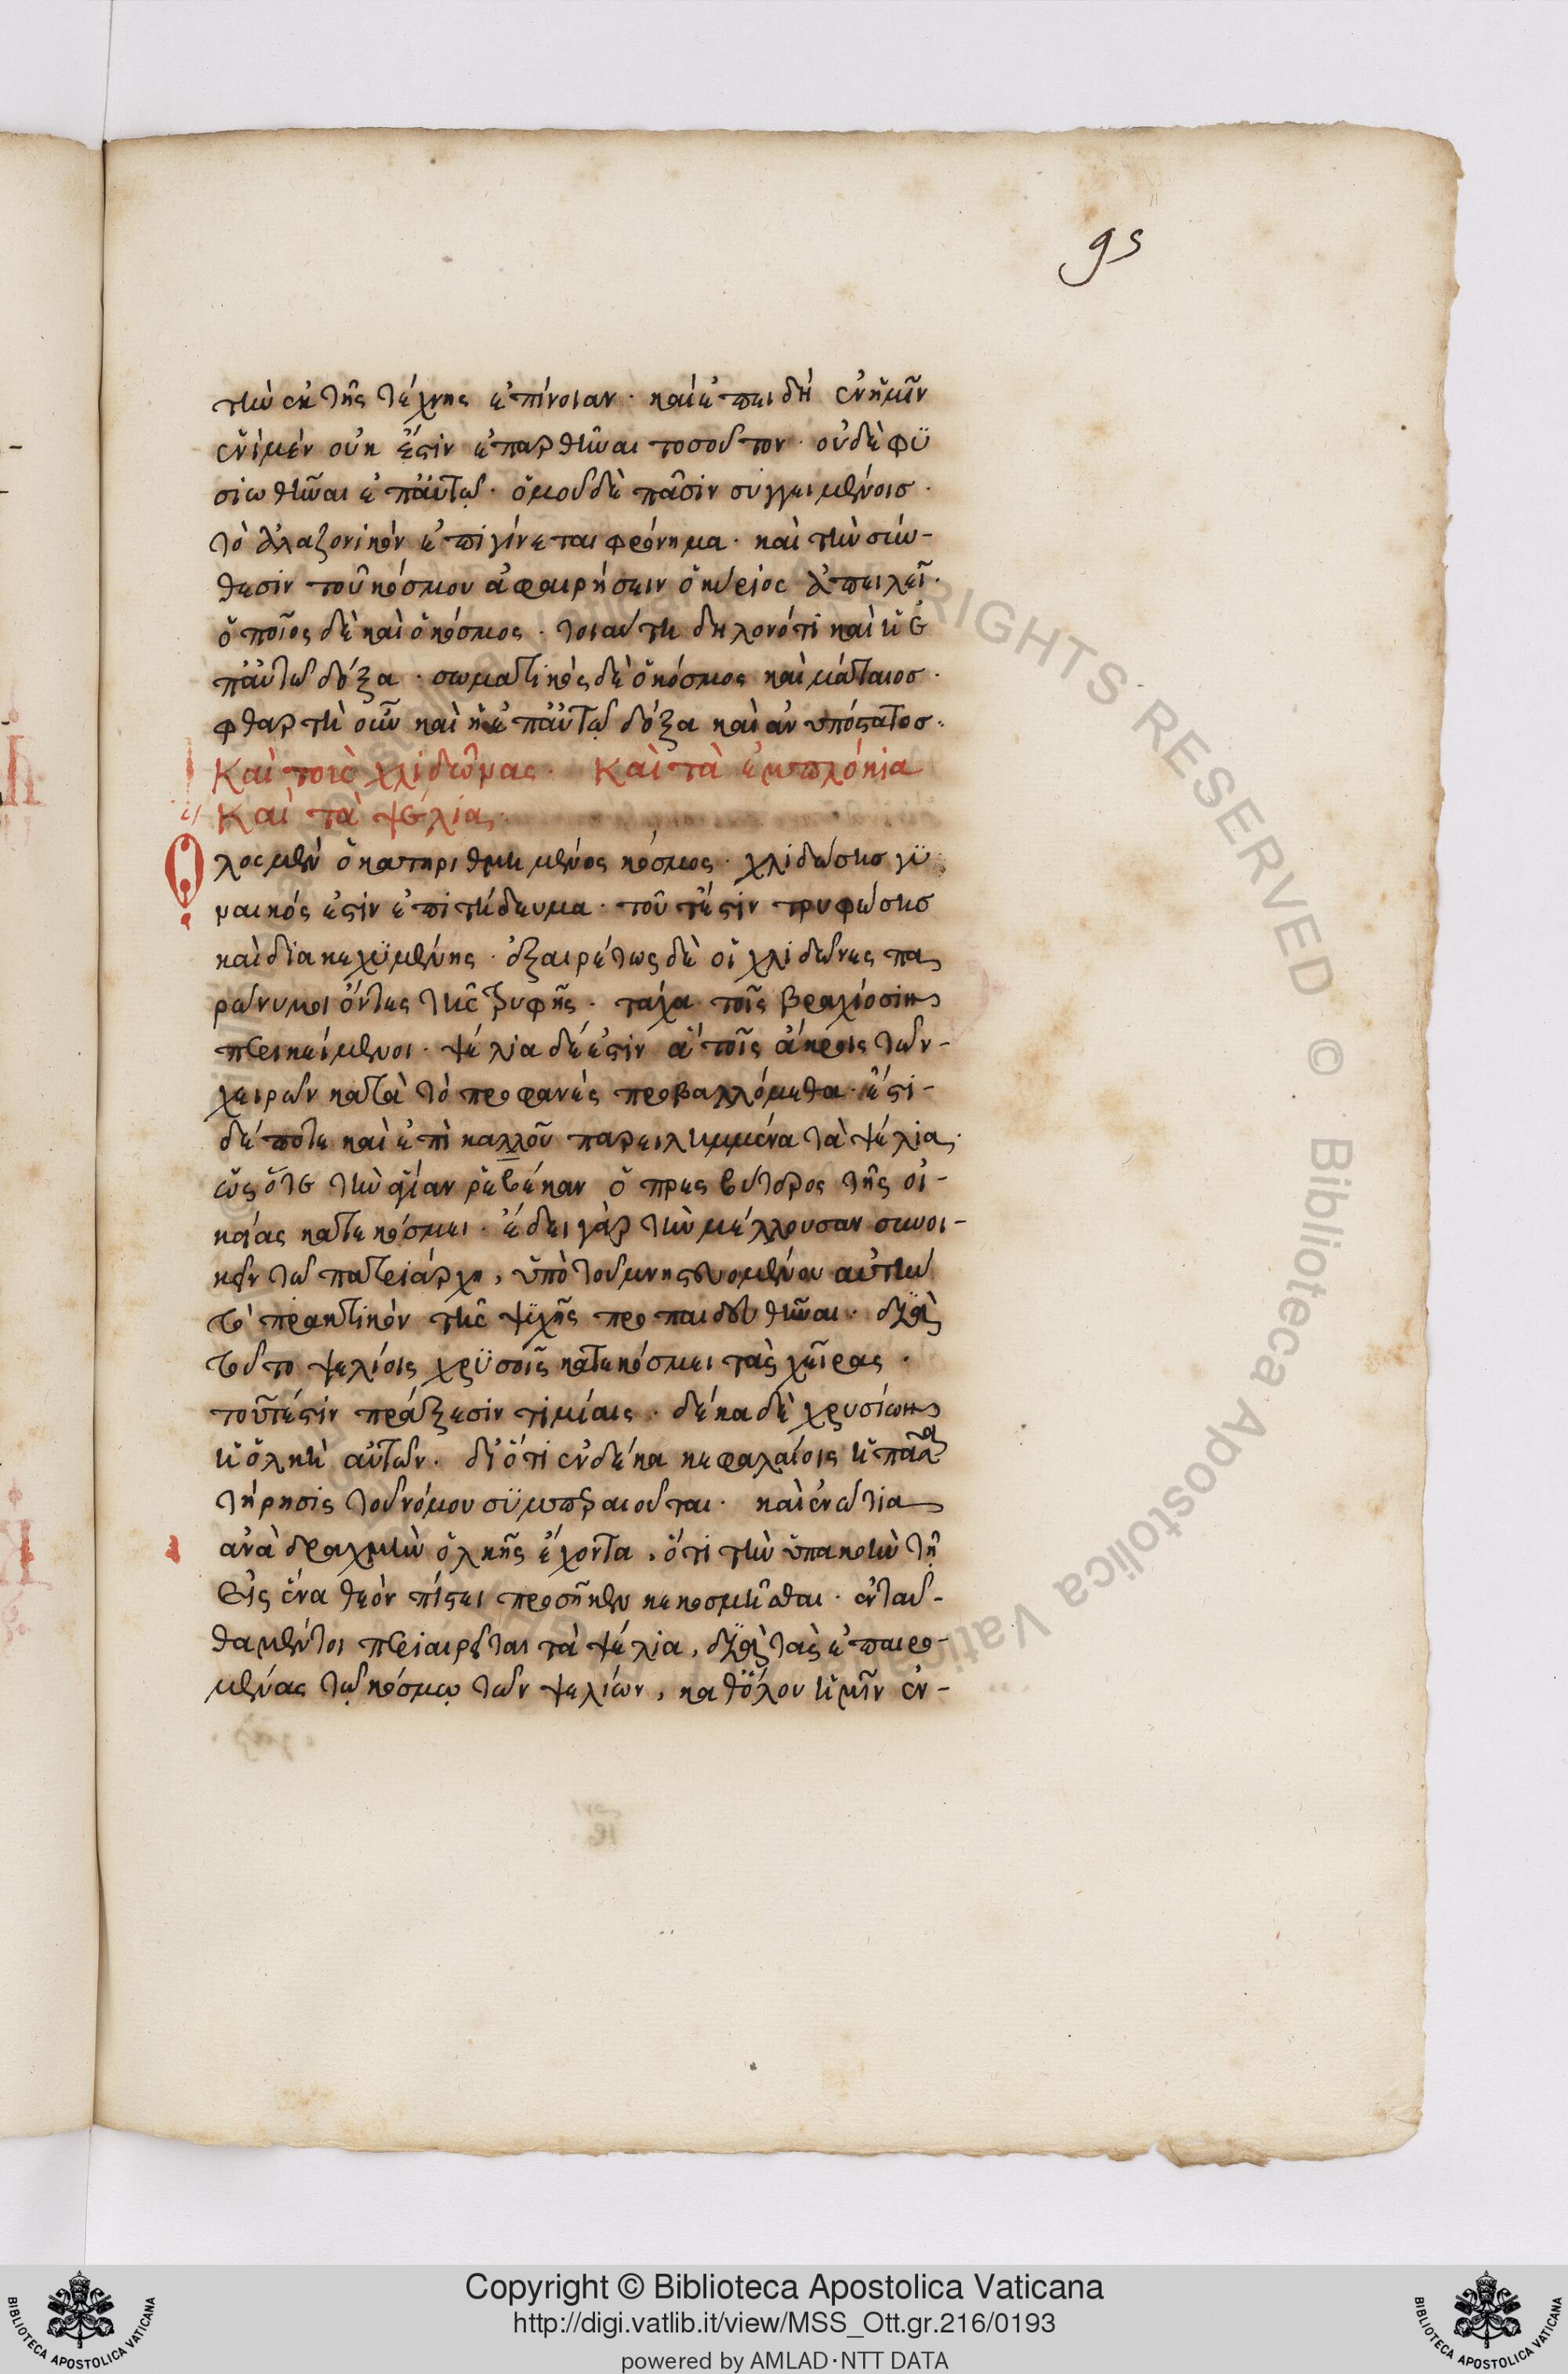 95
τὴν ἐκ τῆς τέχνης ἐπίνοιαν· καὶ ἐπειδὴ ἐν ἡμῖν
ἑνὶ μὲν οὐκ ἔστιν ἐπαρθῆναι τοσοῦτον· οὐδὲ φϋ
σιωθῆναι ἐπ' αὐτῷ· ὁμοῦ δὲ πᾶσιν συγκειμένοισ·
τὸ ἀλαζονικὸν ἐπιγίνεται φρόνημα· καὶ τὴν σύν-
θεσιν τοῦ κόσμου ἀφαιρήσειν ὁ κύριος ἀπειλεῖ·
ὁποῖος δὲ καὶ ὁ κόσμος· τοιαύτη δηλονότι καὶ ἡ ἐ
π' αὐτῶ δόξα· σωματικὸς δὲ ὁ κόσμος καὶ μάταιοσ·
φθαρτὴ οὖν καὶ ἡ ἐπ' αὐτῷ δόξα καὶ ἀνυπόστατοσ·
Καὶ τοὺς χλιδῶνας· Καὶ τὰ ἐμπλόκια
Καὶ τὰ ψέλια·
Ὅλος μὲν ὁ κατηριθμημένος κόσμος· χλιδώσησ γϋ
ναικός ἐστιν ἐπιτήδευμα· τοῦτέστιν τρυφώσησ
καὶ διακεχϋμένης· ἐξαιρέτως δὲ οἱ χλιδῶνες πα
ρώνυμοι ὄντες τῆς τρυφῆς· τάχα τοῖς βραχίοσιν
περικείμενοι· ψέλια δέ ἐστιν ἃ τοῖς ἄκροις τῶν-
χειρῶν κατὰ τὸ προφανὲς προβαλλόμεθα· ἔστι-
δέ ποτε καὶ ἐπὶ καλλοῦ παρειλημμένα τὰ ψέλια·
ὡς ὅτε τὴν ἁγίαν ῥεβέκαν ὁ πρεσβύτερος τῆς οἰ-
κίας κατεκόσμει· ἔδει γὰρ τὴν μέλλουσαν συνοι-
κεῖν τῶ πατριάρχη, ὑπὸ τοῦ μνηστευομένου αὐτὴν
τὸ πρακτικὸν τῆς ψϋχῆς προπαιδευθῆναι· διὰ
τοῦτο ψελίοις χρϋσοῖς κατεκόσμει τὰς χεῖρας·
τοῦτέστιν πράξεσιν τιμίαις· δέκα δὲ χρυσίων
ἡ ὁλκὴ αὐτῶν· διότι ἐν δέκα κεφαλαίοις ἡ παρα
τήρησις τοῦ νόμου σϋμπεραιοῦται· καὶ ἐνώτια
ἀνὰ δραχμὴν ὁλκῆς ἔχοντα, ὅτι τὴν ὑπακοὴν τῇ
εἰς ἕνα θεὸν πίστει προσῆκεν κεκοσμῆσθαι· ἐνταῦ-
θα μέντοι περιαιρεῖται τὰ ψέλια, διὰ τὰς ἐπαιρο-
μένας τῷ κόσμῳ τῶν ψελίων, καθόλου ἡμῖν ἐν-
© Biblioteca Apostolica Vaticana
RIGHTS RESERVED
Copyright © Biblioteca Apostolica Vaticana
http://digi.vatlib.it/view/MSS_Ott.gr.216/0193
powered by AMLAD·NTT DATA
BIBLIOTECA APOSTOLICA VATICANA
BIBLIOTECA APOSTOLICA VATICANA